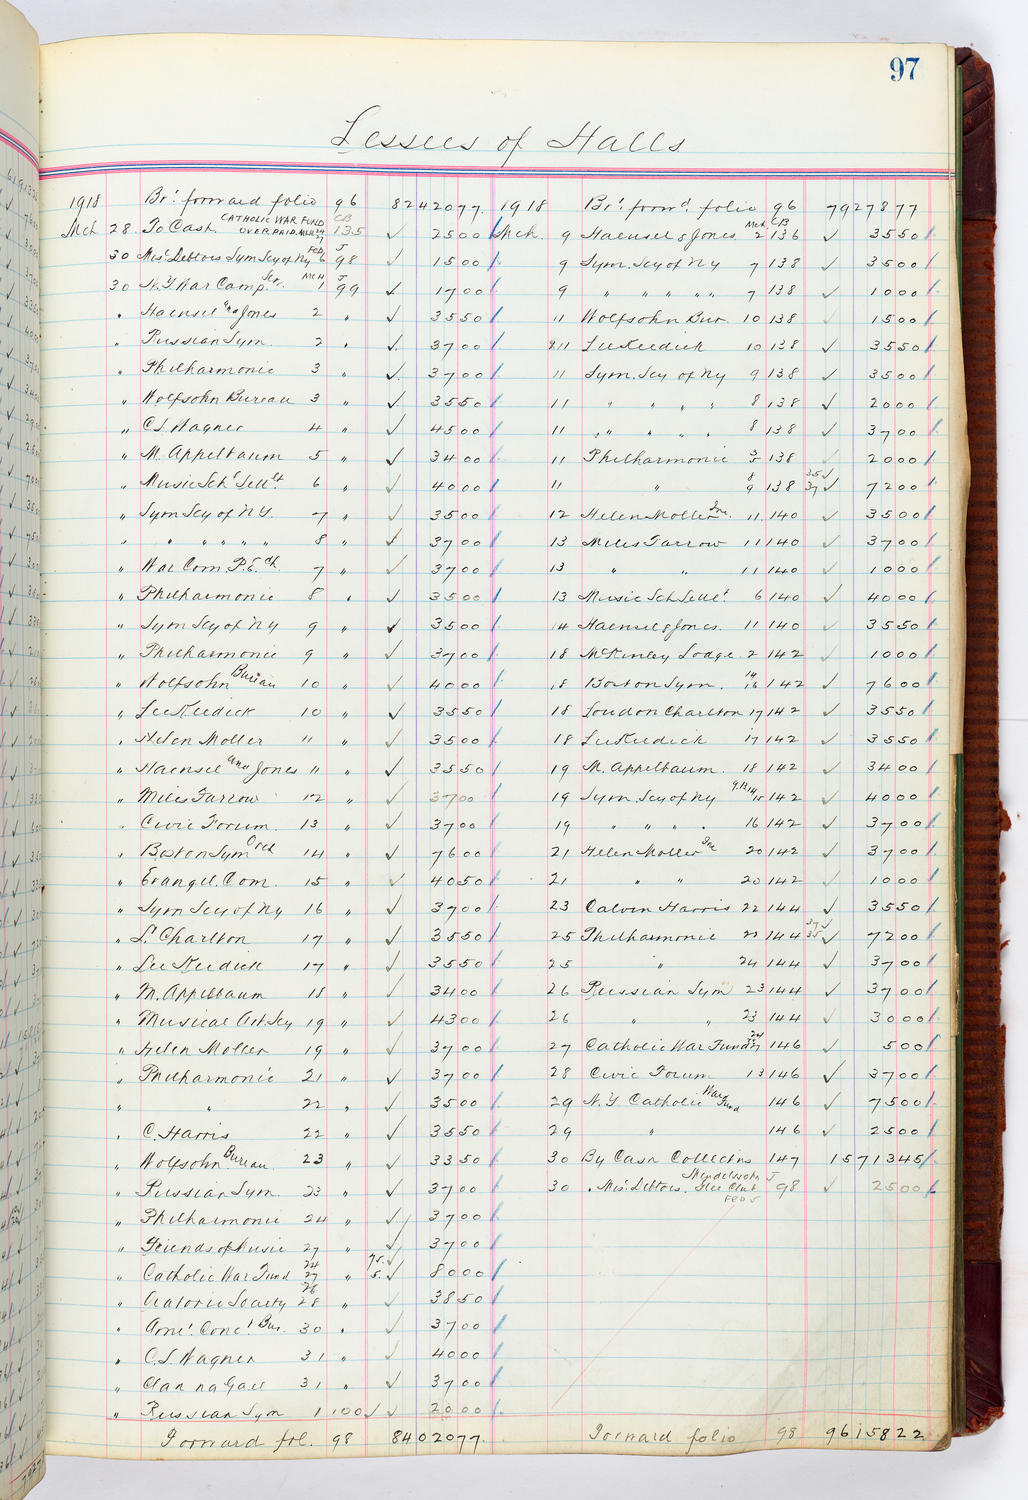 97
Lessees of Halls
1918 Brt. forward folio 96 8242077.
Mch 28 To Cash CATHOLIC WAR FUND OVERPAID MCH 24 27 CB 135 ✓ 2500
30 Misc Debtors Sym Scy of Ny Feb 6 J 98 ✓ 1500
30 N.Y War Camp Ser. MCH 1 J 99 ✓ 1700
" Haensel and Jones 2 " ✓ 3550
" Russian Sym. 2 " ✓ 3700
" Philharmonic 3 " ✓ 3700
" Wolfsohn Bureau 3 " ✓ 3550
" C.L. Wagner 4 " ✓ 4500
" M. Appelbaum 5 " ✓ 3400
" Music Sch Settlt 6 " ✓ 4000
" Sym Scy of N.Y. 7 " ✓ 3500
" " " " " " 8 " ✓ 3700
" War Com P.E. Ch 7 " ✓ 3700
" Philharmonic 8 " ✓ 3500
" Sym Scy of Ny 9 " ✓ 3500
" Philharmonic 9 " ✓ 3700
" Wolfsohn Bureau 10 " ✓ 4000
" Lee Keedick 10 " ✓ 3550
" Helen Moller 11 " ✓ 3500
" Haensel and Jones 11 " ✓ 3550
" Miles Farrow 12 " ✓ 3700
" Civic Forum 13 " ✓ 3700
" Boston Sym Orch 14 " ✓ 7600
" Evangel. Com. 15 " ✓ 4050
" Sym Scy of Ny 16 " ✓ 3700
" L. Charlton 17 " ✓ 3550
" Lee Keedick 17 " ✓ 3550
" M. Appelbaum 18 " ✓ 3400
" Musical Art Scy 19 " ✓ 4300
" Helen Moller 19 " ✓ 3700
" Philharmonic 21 " ✓ 3700
" " 22 " ✓ 3500
" C. Harris 22 " ✓ 3550
" Wolfsohn Bureau 23 " ✓ 3350
" Russian Sym. 23 " ✓ 3700
" Philharmonic 24 " ✓ 3700
" Friends of Music 27 " ✓ 3700
" Catholic War Fund 24 27 " 75. 5. ✓ 8000
" Oratorio Society 26 28 " ✓ 3850
" Amer. Conct Bur. 30 " ✓ 3700
" C.L. Wagner 31 " ✓ 4000
" Clan na Gael 31 " ✓ 3700
" Russian Sym 1 100 ✓ ✓ 2000
Forward fol. 98 8402077.
1918 Brt. forwd. folio 96 7927877
Mch. 9 Haensel & Jones Mch. 2 CB 136 ✓ 3550
9 Sym. Scy of Ny 7 138 ✓ 3500
9 " " " " " 7 138 ✓ 1000
11 Wolfsohn Bur. 10 138 ✓ 1500
11 Lee Keedick 10 138 ✓ 3550
11 Sym. Scy of Ny 9 138 ✓ 3500
11 " " " " 8 138 ✓ 2000
11 " " " " 8 138 ✓ 3700
11 Philharmonic 3 138 ✓ 2000
11 " 8 9 138 35 37 ✓ 7200
12 Helen Moller Inc. 11 140 ✓ 3500
13 Miles Farrow 11 140 ✓ 3700
13 " " 11 140 ✓ 1000
13 Music Sch Settlt 6 140 ✓ 4000
14 Haensel & Jones. 11 140 ✓ 3550
18 McKinley Lodge 2 142 ✓ 1000
18 Boston Sym. 14 16 142 ✓ 7600
18 Loudon Charlton 17 142 ✓ 3550
18 Lee Keedick 17 142 ✓ 3550
19 M. Appelbaum. 18 142 ✓ 3400
19 Sym. Scy of Ny 15 142 ✓ 4000
19 " " " " 16 142 ✓ 3700
21 Helen Moller Inc 20 142 ✓ 3700
21 " " 20 142 ✓ 1000
23 Calvin Harris 22 144 ✓ 3550
25 Philharmonic 21 144 37 35 ✓ 7200
25 " 24 144 ✓ 3700
26 Russian Sym 23 144 ✓ 3700
26 " " 23 144 ✓ 3000
27 Catholic War Fund 24 27 146 ✓ 500
28 Civic Forum 13 146 ✓ 3700
29 N.Y. Catholic War Fund 146 ✓ 7500
29 " 146 ✓ 2500
30 By Cash Collectns 147 1571345
30 " Misc Debtors. Mendelssohn Glee Club FEB 5 J 98 ✓ 2500
Forward folio 98 9615822